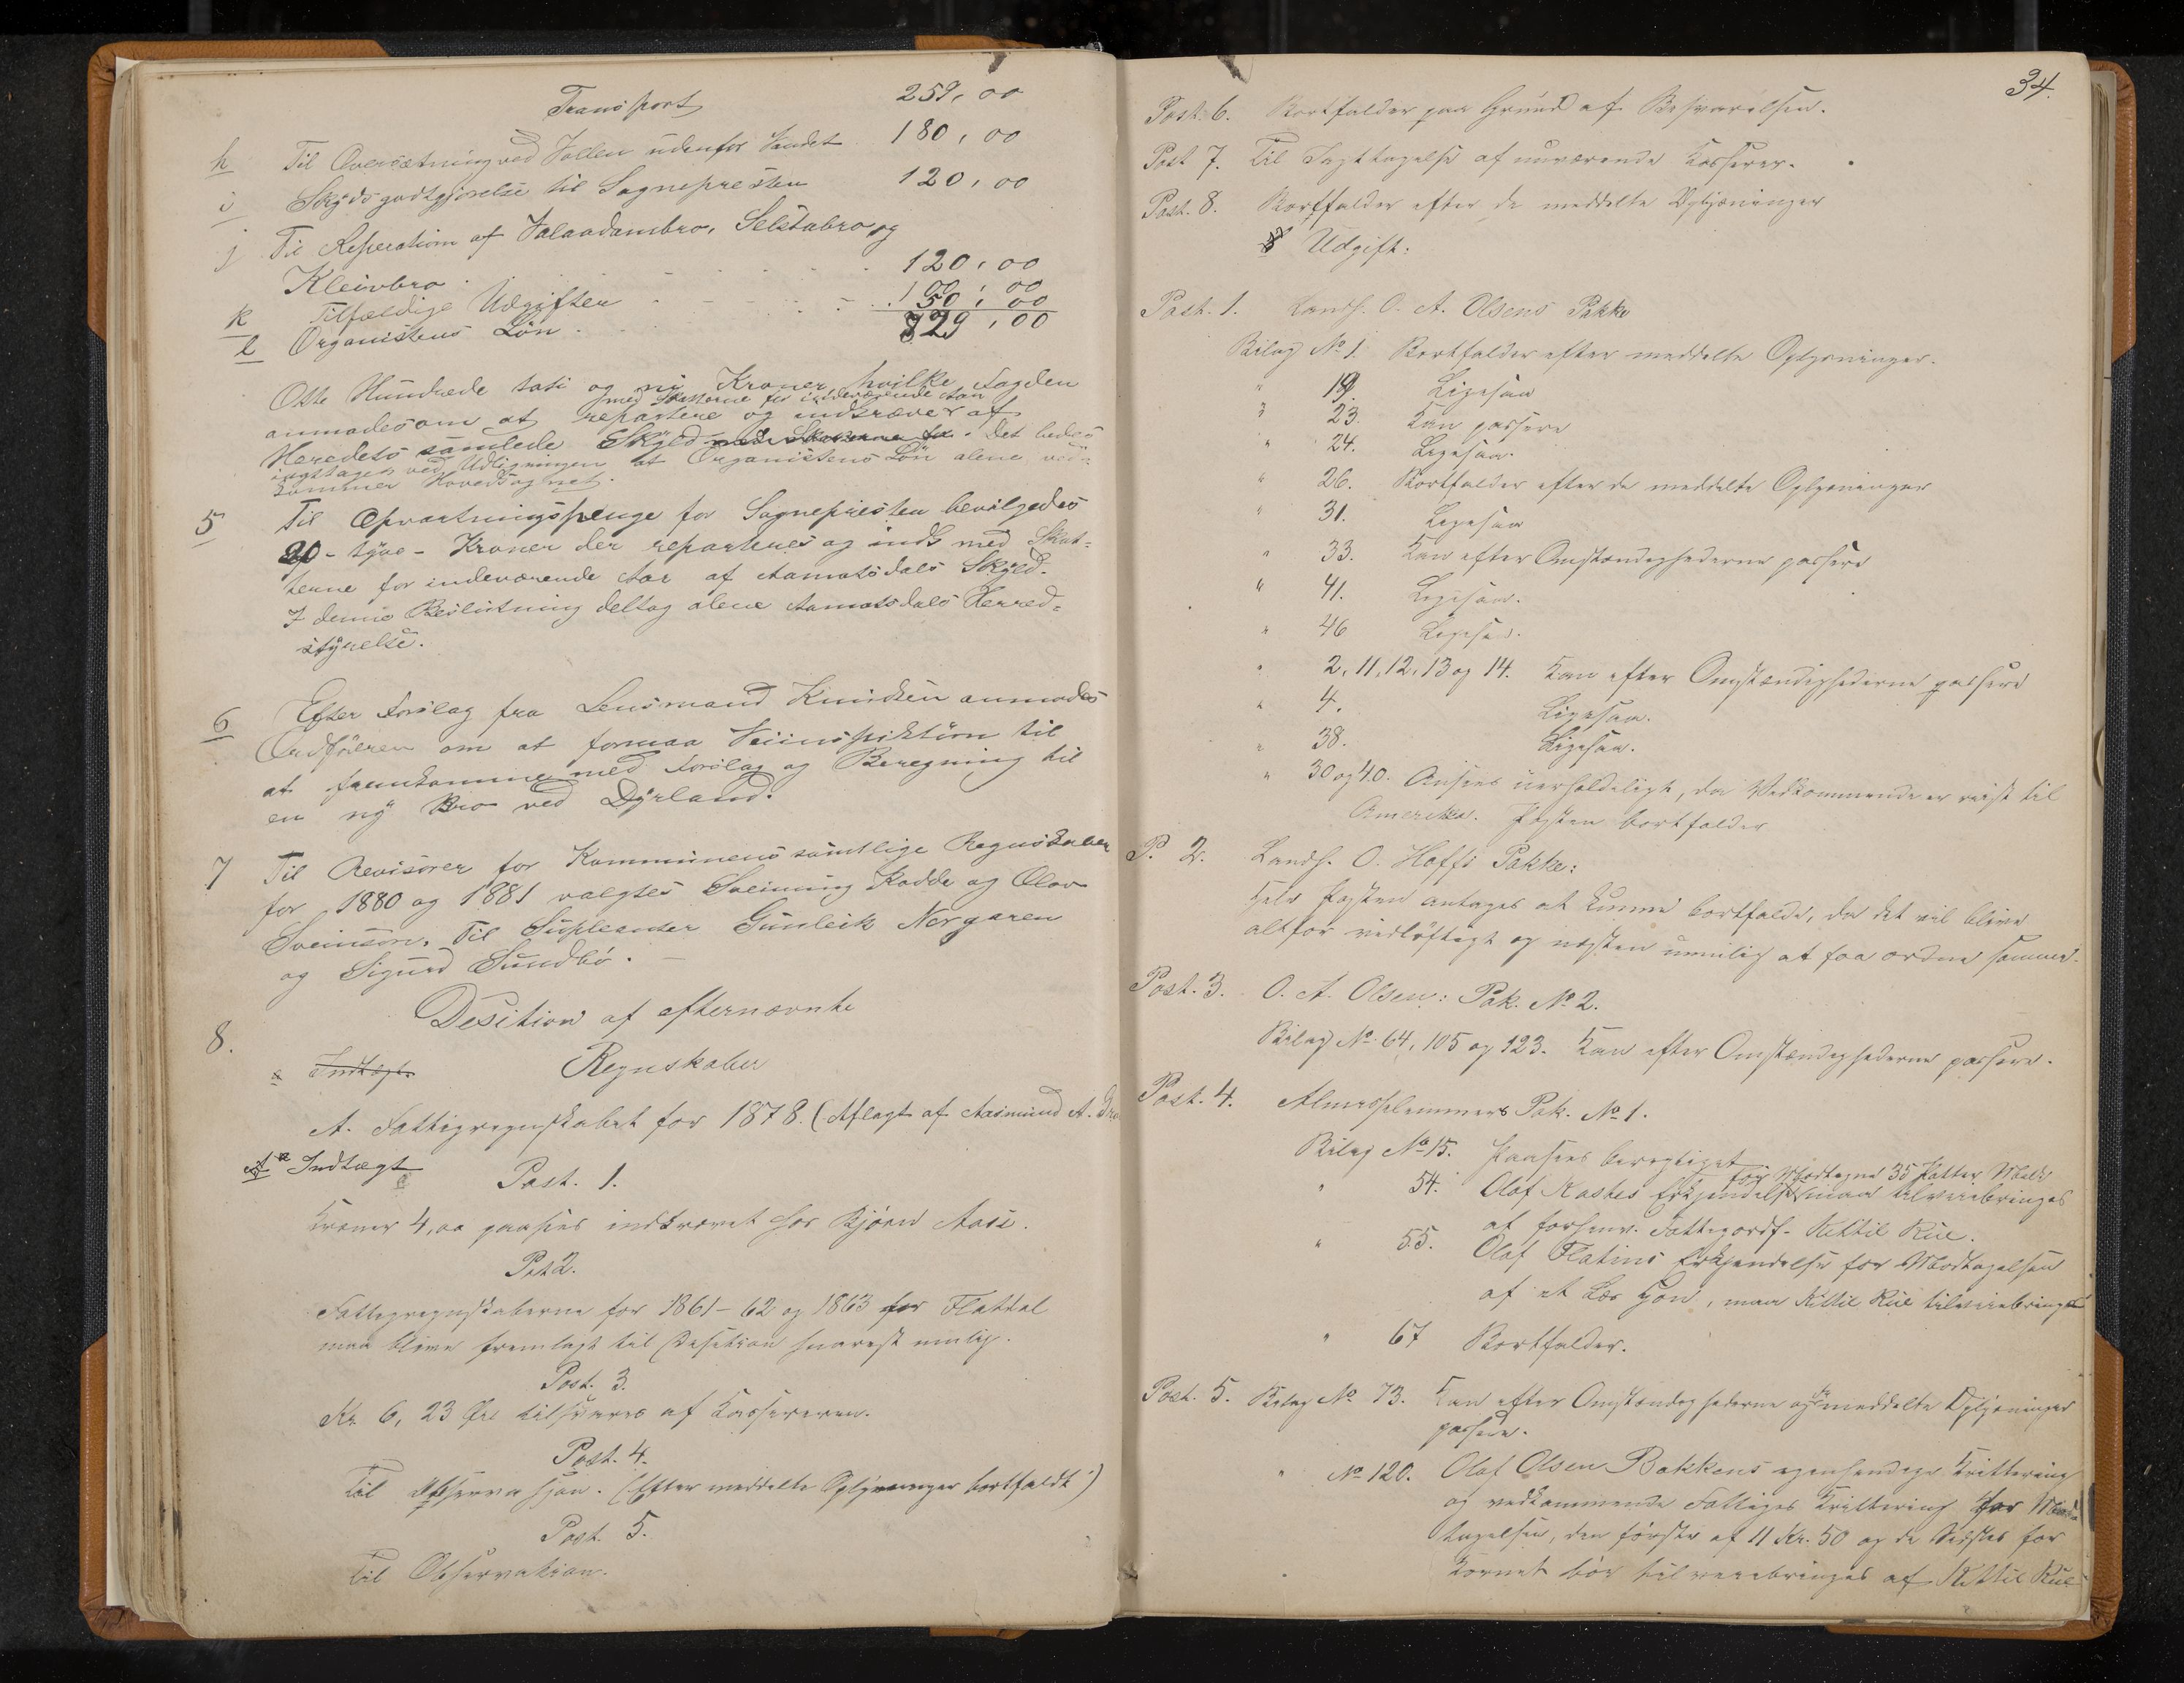 Transport 259,00
h Til Oversætning ved Vallen udenfor Vandet 180,00
i Skydsgodtgjörelse til Sognepresten 120,00
j Til Reperation af Valaadambro, Selstabro og
Kleivbro 120,00
k Tilfældige Udgifter 100,00
l Organistens Lön 50,00
829,00
Otte Hundrede toti og ni Kroner, hvilke Fogden
med Skatterne for indeværende Aar
anmodes om at repartere og indkræve af
Heredets samlede Skyld med Skatterne for. Det bedes
iagttaget ved Udligningen at Organistens Lön alene ved-
kommer Hovedsognet.
5 Til Opvartningspenge for Sognepresten bevilgedes
20 - tyve - Kroner der reparteres og indk med Skat-
terne for indeværende Aar af Aamotsdals Skyld.
I denne Beslutning deltog alene Aamotsdals Herred-
styrelse.
6 Efter Forslag fra Lensmand Knudsen anmodes
Ordföreren om at formaa Veiinspektören til
at fremkomme med Forslag og Beregning til
en ny Bro ved Dyrland.
7 Til Revisorer for Kommunens samtlige Regnskaber
for 1880 og 1881 valgtes Sveinung Kodde og Olav
Sveinson. Til Supleanter Gunleik Nergaren
og Sigurd Sundbö. —
8. Desition af efternævnte
Indtægt. Regnskaber
A. Fattigregnskabet for 1878. (Aflagt af Aasmund A.
a Indtægt
Post. 1.
Kroner 4,00 paasees indkrævet hos Bjørn Aase.
Post 2.
Fattigregnskaberne for 1861-62 og 1863 for Flatdal
maa blive fremlagt til Desition snarest mulig.
Post. 3.
Kr. 6, 23 Øre tilsvares af Kassereren.
Post. 4.
Til Observasjon. (Efter meddelte Oplysninger bortfaldt)
Post 5.
Til Observation.
34.
Post. 6. Bortfalder paa Grund af Besvarelsen.
Post 7. Til Iagttagelse af nuværende Kasserer.
Post. 8. Bortfalder efter de meddelte Oplysninger
Udgift:
Post. 1. Landh. O. A. Olsens Pakke
Bilag No 1. Bortfalder efter meddelte Oplysninger.
" 19. Ligesaa
" 23. Kan passere
" 24. Ligesaa.
" 26. Bortfalder efter de meddelte Oplysninger
" 31. Ligesaa
" 33. Kan efter Omstændighederne passere
" 41. Ligesaa.
" 46 Ligesaa.
" 2, 11, 12, 13 og 14. Kan efter Omstændighederne passere
" 4. Ligesaa.
" 38. Ligesaa.
" 30 og 40. Ansees uerholdeligt, da Vedkommende er reist til
Amerika. Posten bortfalder
P. 2. Landh. O. Hoffs Pakke:
Hele Posten antages at kunne bortfalde, da det vil blive
altfor vidløftigt og næsten umulig at faa ordne samme.
Post. 3. O. A. Olsen: Pak. No 2.
Bilag No. 64, 105 og 123. Kan efter Omstændighederne passere.
Post. 4. Almisselemmers Pak. No 1.
Bilag No 15. Paasees berigtiget
for Modtagne 35 Potter Melk
" 54. Olaf Kastes Erkjendelse maa tilveiebringes
af forhenv. Fattigordf. Kittil Rue.
" 55. Olaf Flatins Erkjendelse for Modtagelsen
af et Læs Høn, maa Kittil Rue tilveiebringe
" 67 Bortfalder.
Post. 5. Bilag No 73. Kan efter Omstændighederne og de meddelte Oplysninger
passere.
" No 120. Olaf Olsen Bakkens egenhændige Kvittering
og vedkommende Fattiges Kvittering for Mod-
tagelsen, den første af 11 Kr. 50 og de Sidstes for
Kornet bør tilveiebringes af Kittil Rue